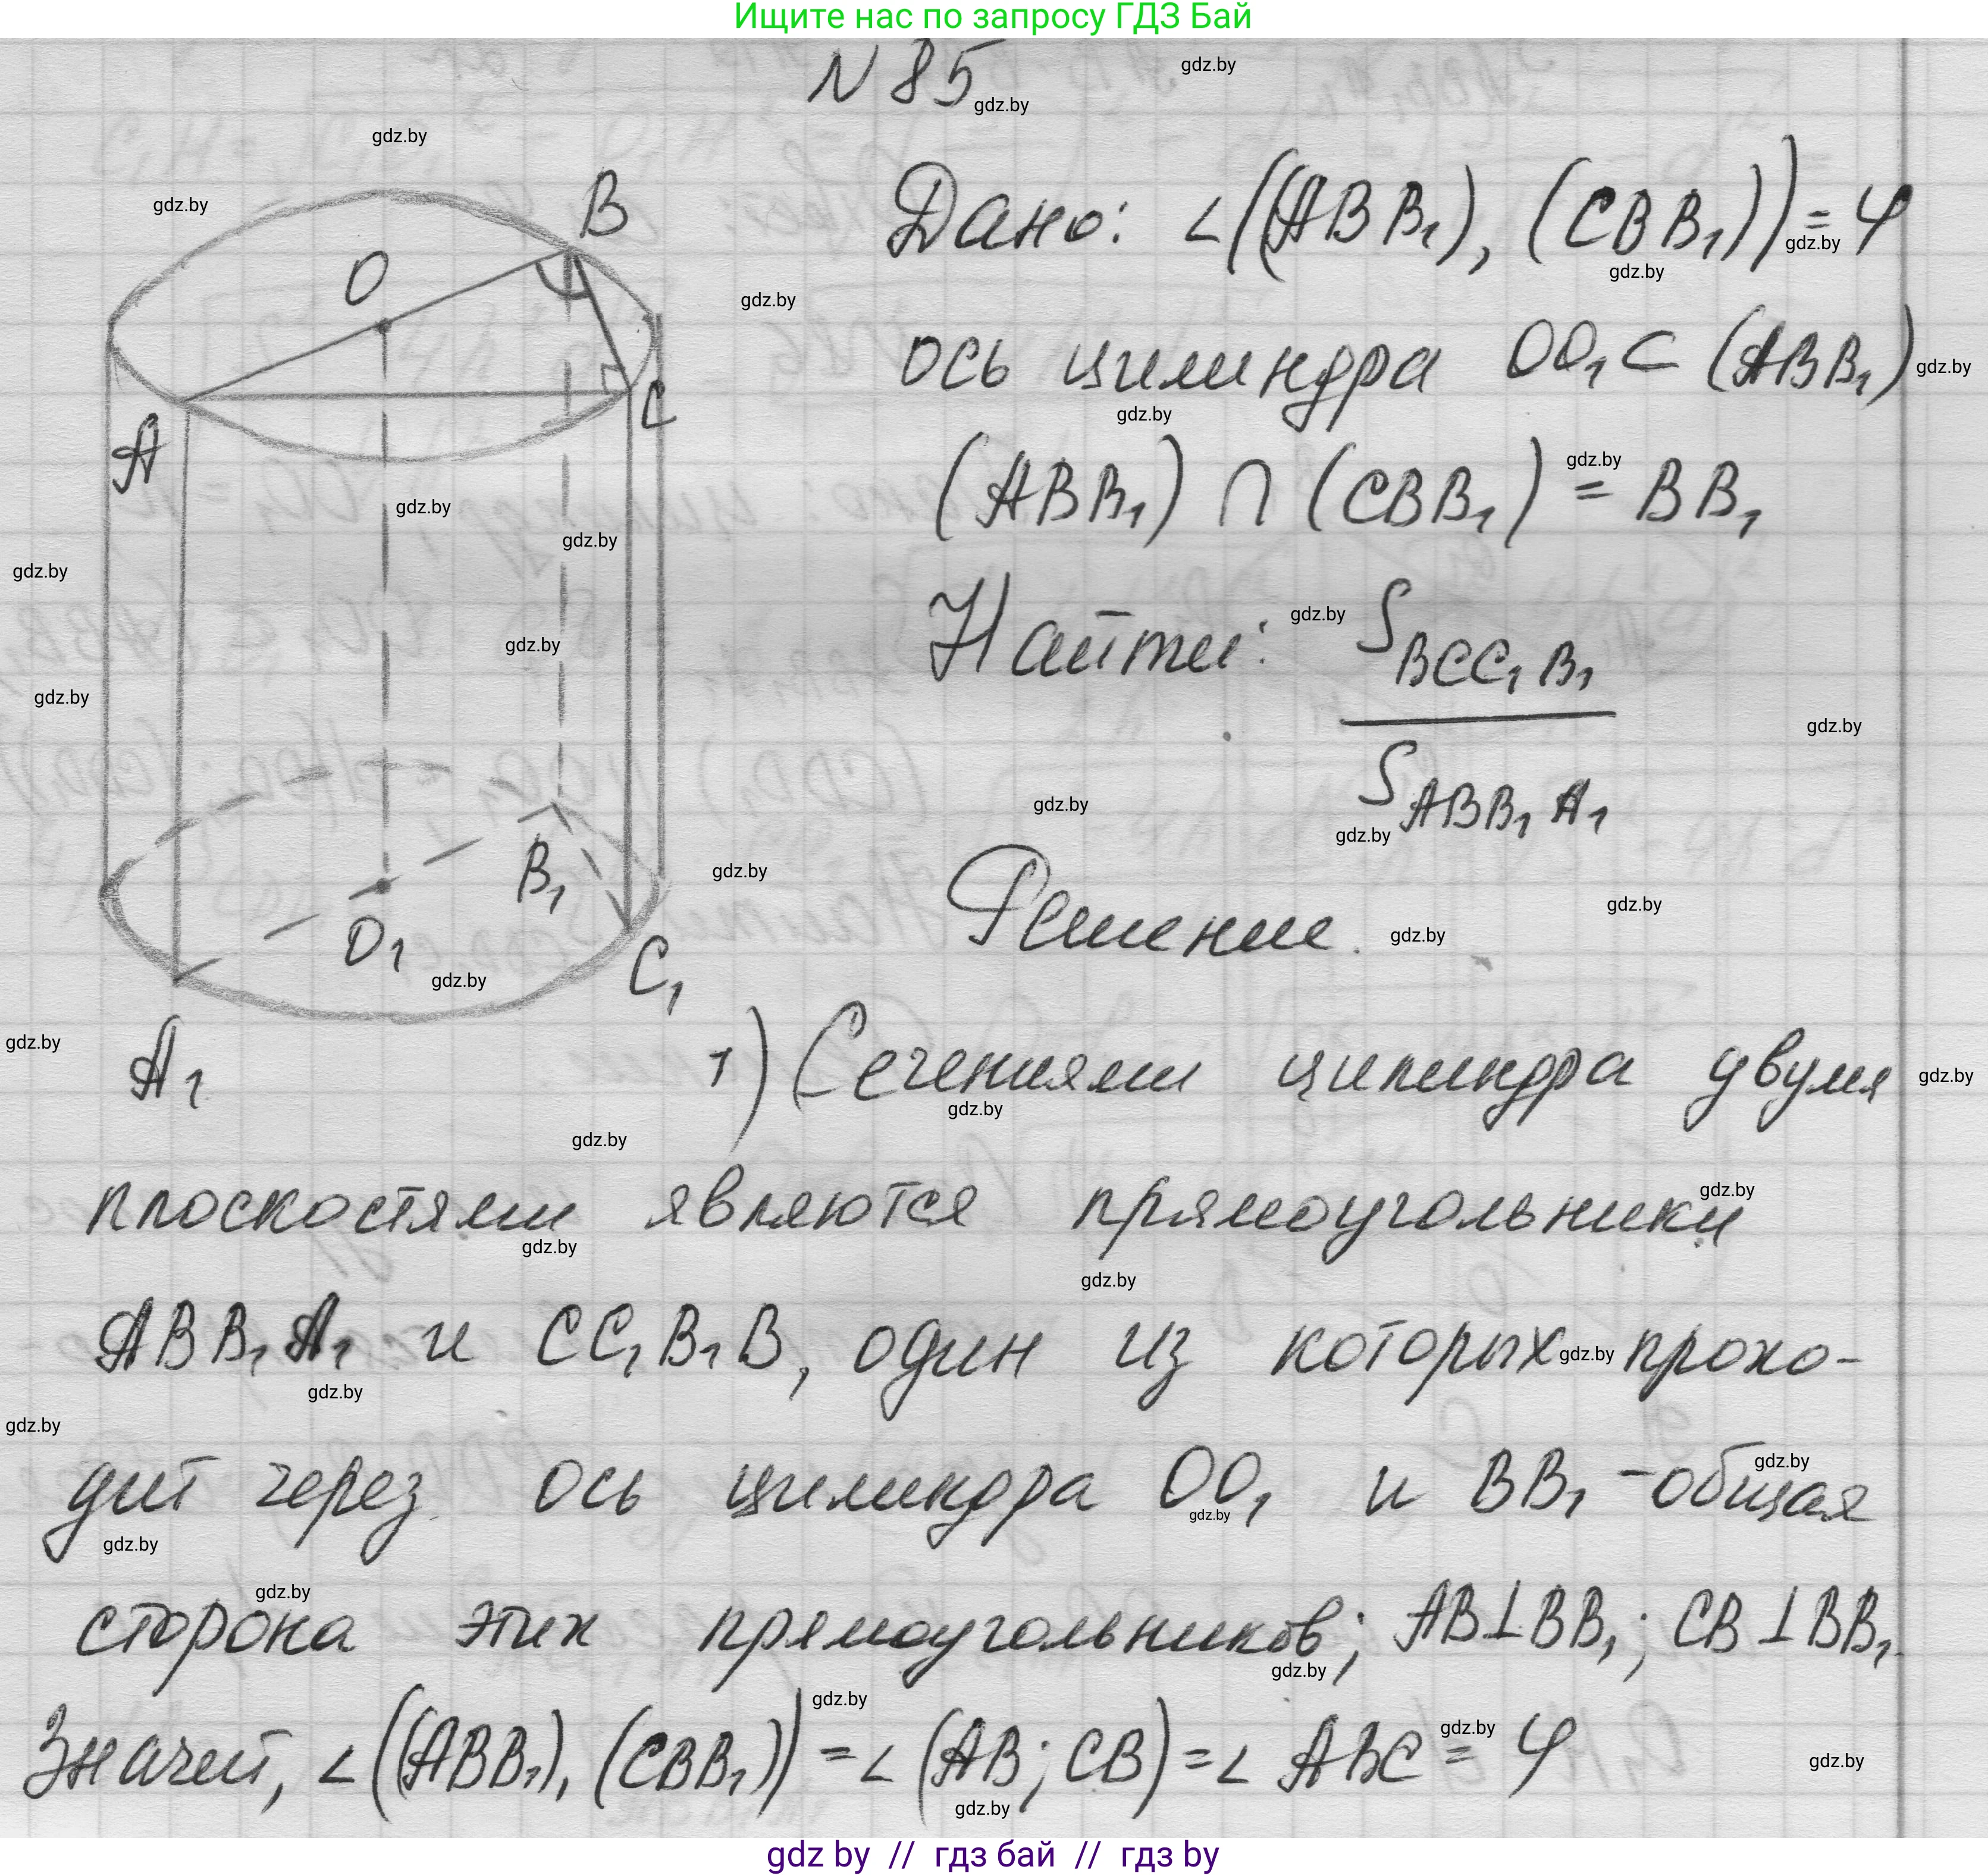 Ищите нас по запросу ГДЗ Бай
N 85
Дано: ∠((ABB₁), (CBB₁)) = φ
ось цилиндра OO₁ ⊂ (ABB₁)
(ABB₁) ∩ (CBB₁) = BB₁
Найти: S_BCC₁B₁
S_ABB₁A₁
Решение.
B
O
A
C
B₁
O₁
C₁
A₁
1) Сечениями цилиндра двумя
плоскостями являются прямоугольники
ABB₁A₁ и CC₁B₁B, один из которых прохо-
дит через ось цилиндра OO₁ и BB₁ - общая
сторона этих прямоугольников; AB⊥BB₁; CB⊥BB₁.
Значит, ∠((ABB₁), (CBB₁)) = ∠(AB; CB) = ∠ ABC = φ
gdz by // гдз бай // гдз by